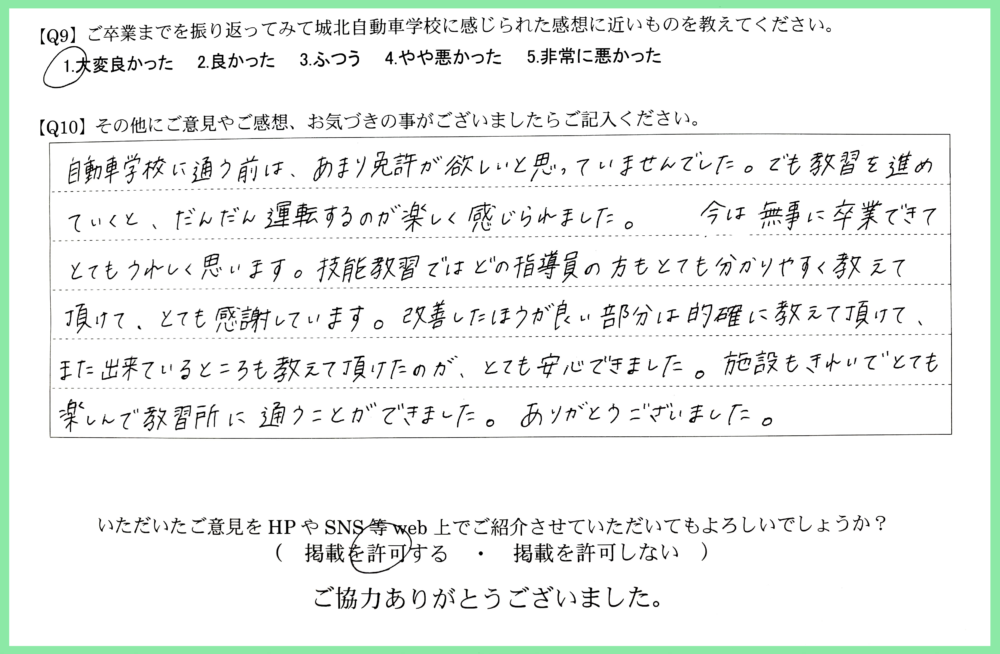 【Q9】ご卒業までを振り返ってみて城北自動車学校に感じられた感想に近いものを教えてください。
1.大変良かった 2.良かった 3.ふつう 4.やや悪かった 5.非常に悪かった
【Q10】その他にご意見やご感想、お気づきの事がございましたらご記入ください。
自動車学校に通う前は、あまり免許が欲しいと思っていませんでした。でも教習を進め
ていくと、だんだん運転するのが楽しく感じられました。 今は無事に卒業できて
とてもうれしく思います。技能教習ではどの指導員の方もとても分かりやすく教えて
頂けて、とても感謝しています。改善したほうが良い部分は的確に教えて頂けて、
また出来ているところも教えて頂けたのが、とても安心できました。施設もきれいでとても
楽しんで教習所に通うことができました。ありがとうございました。
いただいたご意見をHPやSNS等web上でご紹介させていただいてもよろしいでしょうか?
( 掲載を許可する ・ 掲載を許可しない )
ご協力ありがとうございました。